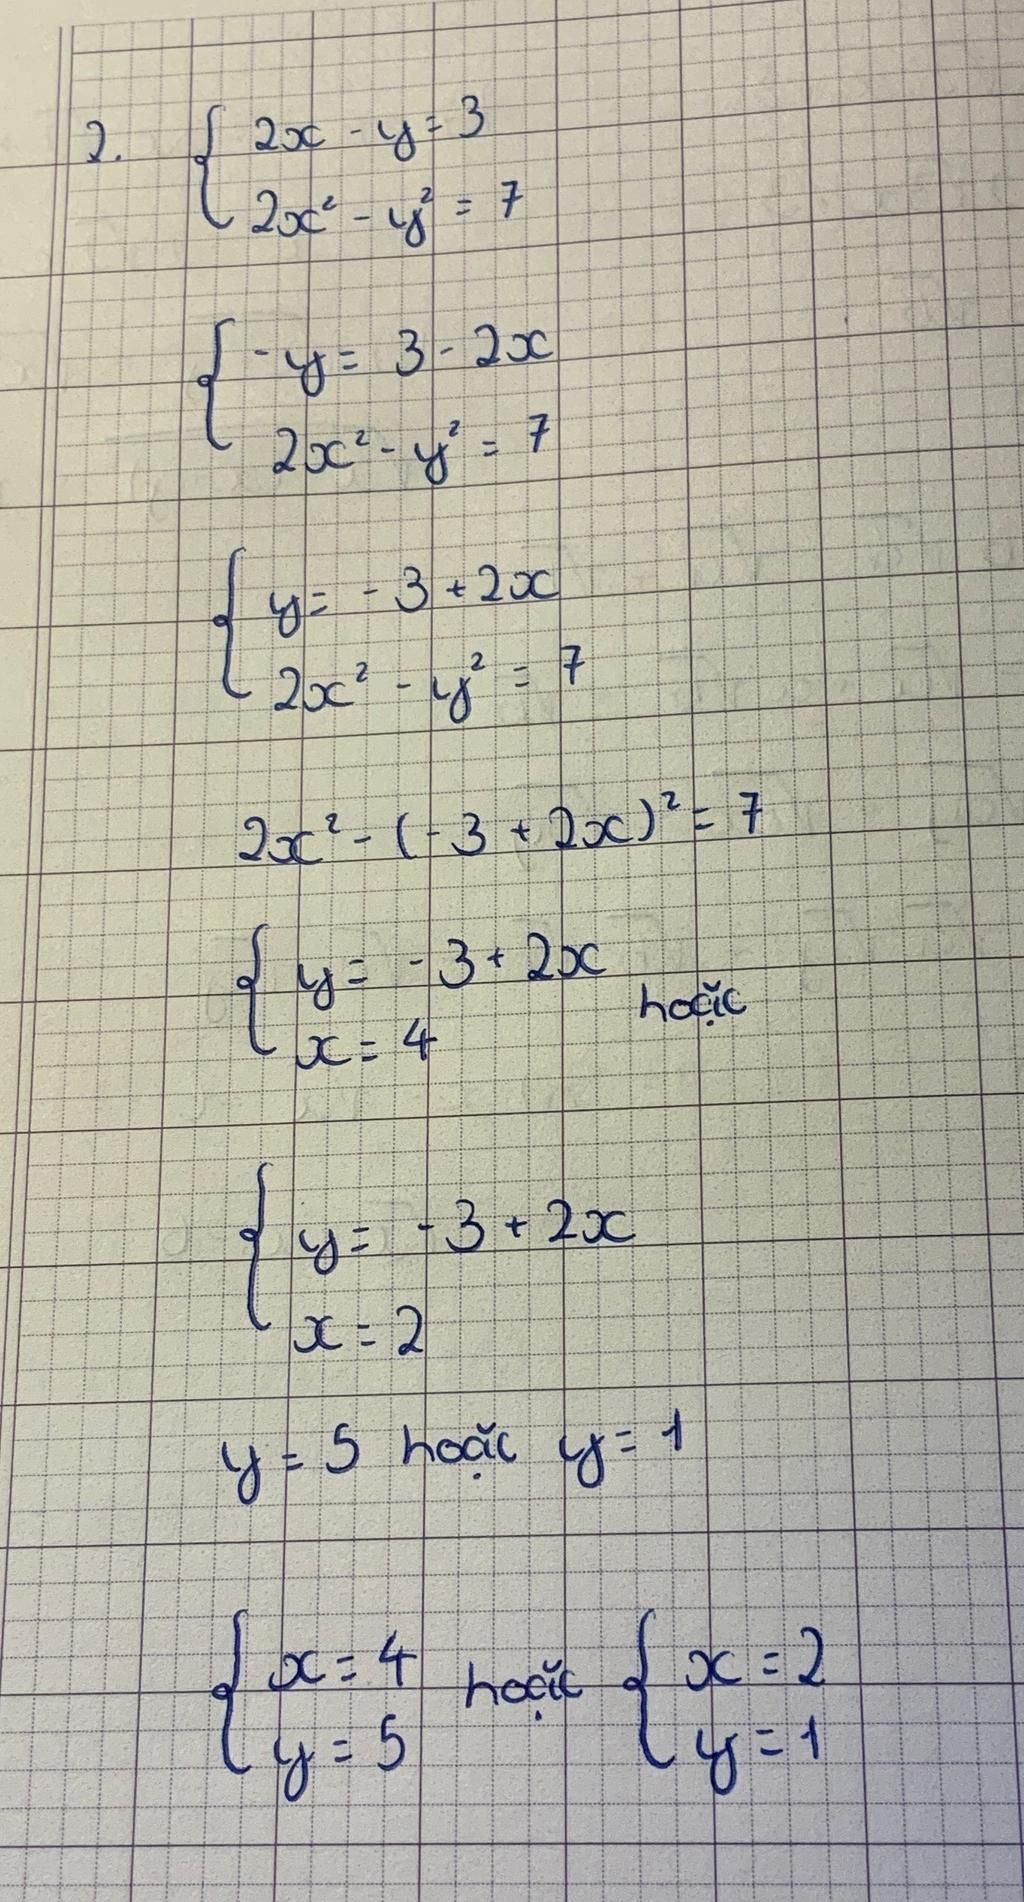 2. { 2x - y = 3
2x² - y² = 7
{ -y = 3 - 2x
2x² - y² = 7
{ y = -3 + 2x
2x² - y² = 7
2x² - (-3 + 2x)² = 7
{ y = -3 + 2x
hoặc
x = 4
{ y = -3 + 2x
x = 2
y = 5 hoặc y = 1
{ x = 4 hoặc { x = 2
y = 5 y = 1